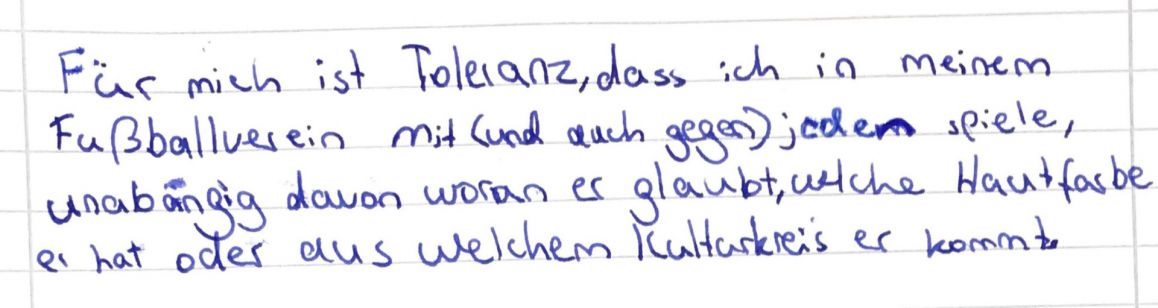 Für mich ist Toleranz, dass ich in meinem
Fußballverein mit (und auch gegen) jedem spiele,
unabängig davon woran er glaubt, welche Hautfarbe
er hat oder aus welchem Kulturkreis er kommt.